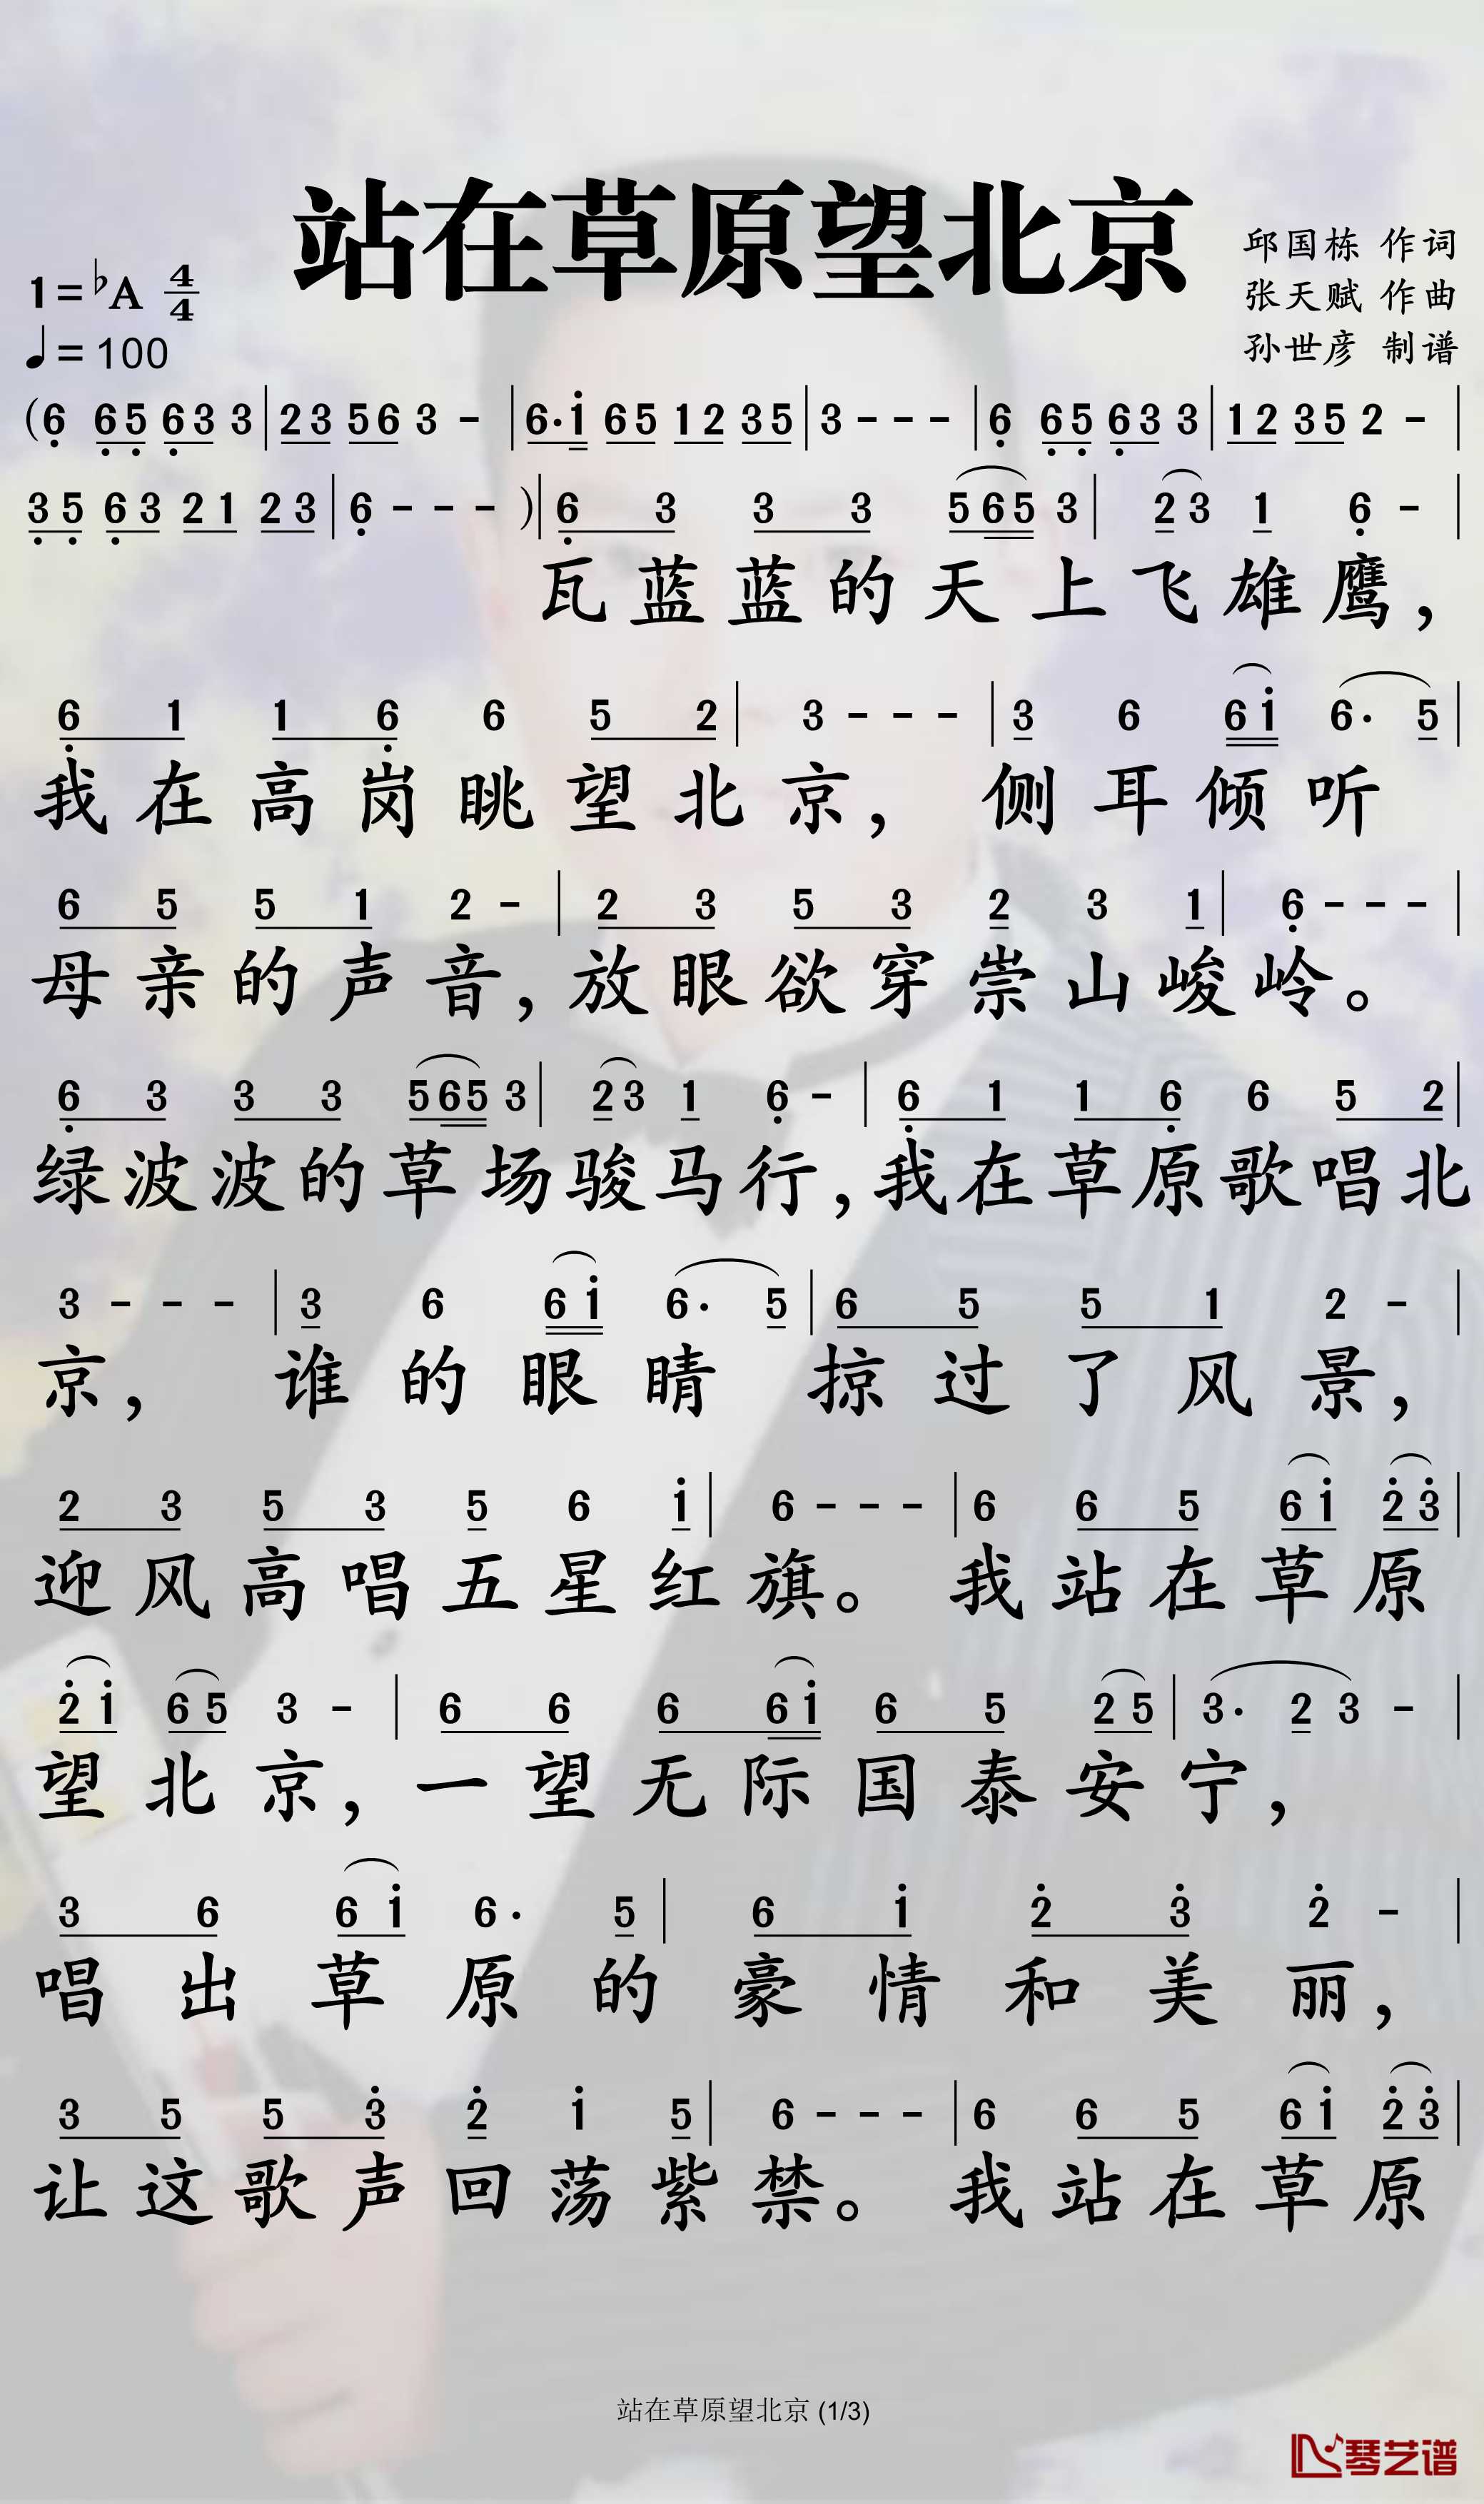 站在草原望北京
邱国栋 作词
张天赋 作曲
孙世彦 制谱
1=♭A 4/4
♩=100
(6 65 63 3|23 56 3 -|6·i 65 12 35|3 - - -|6 65 63 3|12 35 2 -|
35 63 21 23|6 - - - )|6 3 3 3 565 3|23 1 6 -|
瓦蓝蓝的天上飞雄鹰，
6 1 1 6 6 5 2|3 - - -|3 6 6i 6· 5|
我在高岗眺望北京，侧耳倾听
6 5 5 1 2 -|2 3 5 3 2 3 1|6 - - -|
母亲的声音，放眼欲穿崇山峻岭。
6 3 3 3 565 3|23 1 6 -|6 1 1 6 6 5 2|
绿波波的草场骏马行，我在草原歌唱北
3 - - -|3 6 6i 6· 5|6 5 5 1 2 -|
京，谁的眼睛掠过了风景，
2 3 5 3 5 6 i|6 - - -|6 6 5 6i 23|
迎风高唱五星红旗。我站在草原
2i 65 3 -|6 6 6 6i 6 5 25|3· 2 3 -|
望北京，一望无际国泰安宁，
3 6 6i 6· 5|6 i 2 3 2 -|
唱出草原的豪情和美丽，
3 5 5 3 2 i 5|6 - - -|6 6 5 6i 23|
让这歌声回荡紫禁。我站在草原
站在草原望北京 (1/3)
琴艺谱